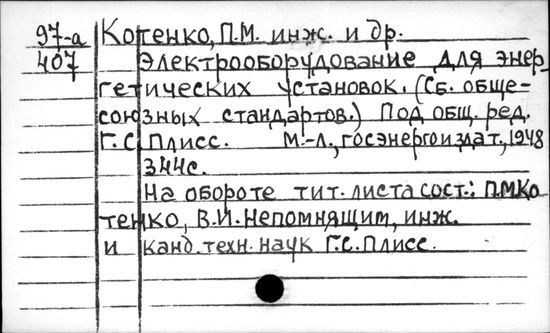 97-а Котенко, П.М. инж. и др.
407 Электрооборудование для энер-
гетических установок. (Сб. обще-
союзных стандартов.) Под общ. ред.
Г.С. Плисс. М.-Л., госэнергоиздат, 1948
344с.
На обороте тит. листа сост.: П.М Ко
тенко, В.И. Непомнящим, инж.
и канд. техн. наук Г.С. Плисс.